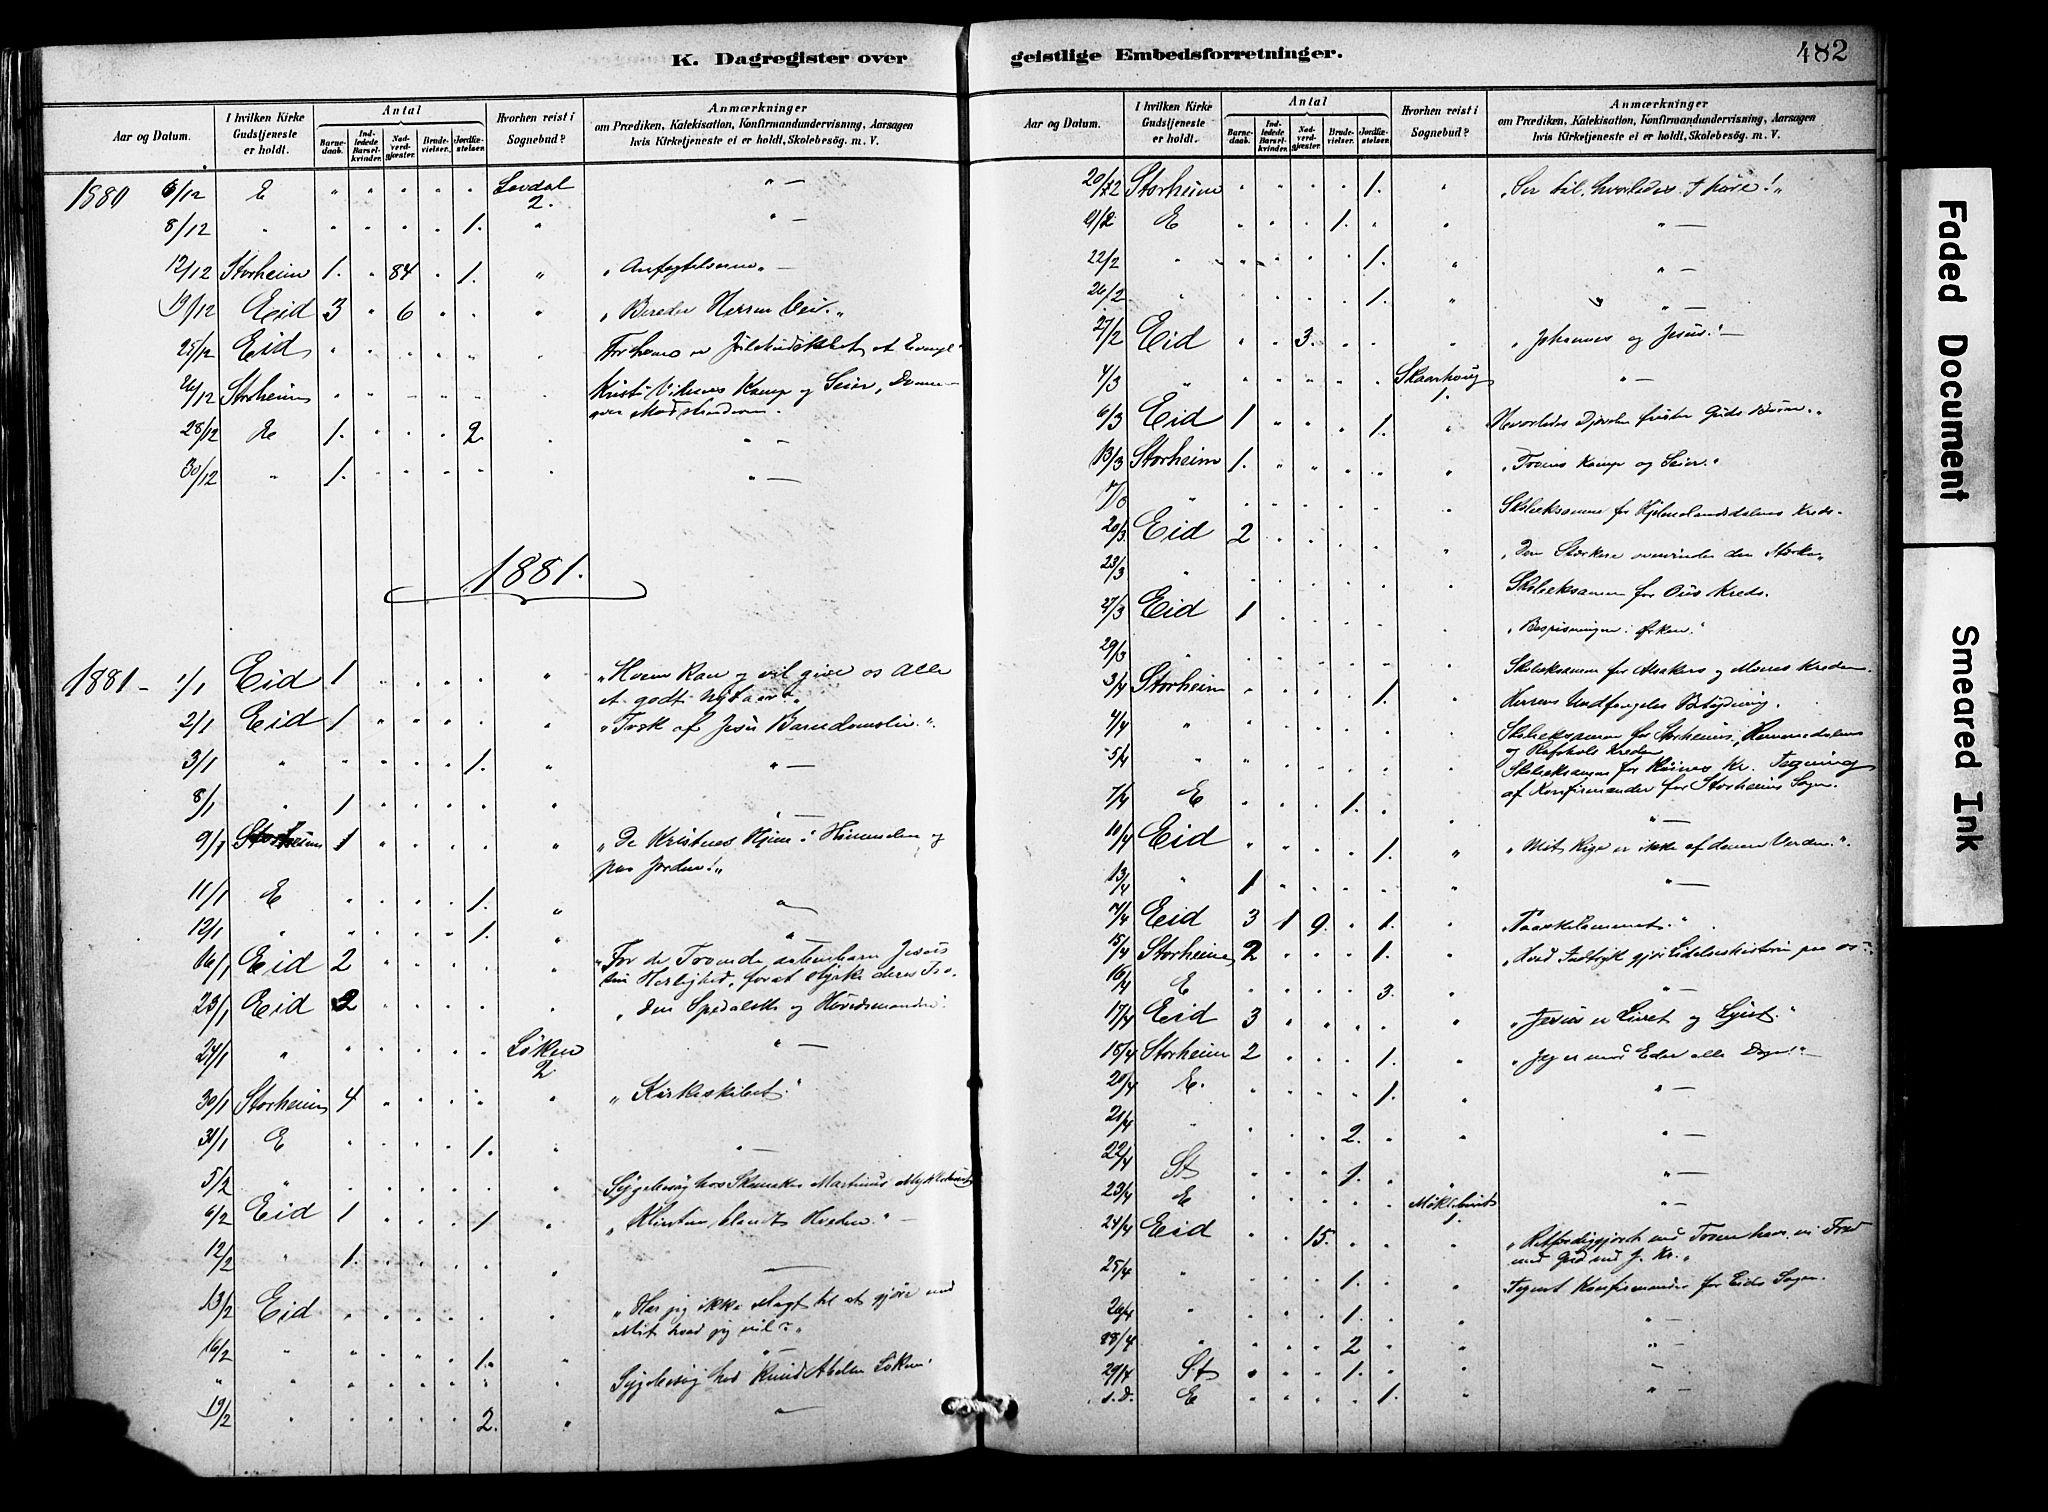 K. Dagregister over geistlige Embedsforretninger.
482
Aar og Datum.
I hvilken Kirke Gudstjeneste er holdt.
Antal
Barnedaab.
Indledede Barselkvinder.
Nadverdgjæster.
Brudevielser.
Jordfæstelser.
Hvorhen reist i Sognebud?
Anmærkninger
om Prædiken, Katekisation, Konfirmandundervisning, Aarsagen
hvis Kirketjeneste ei er holdt, Skolebesög. m. V.
1880 6/12 E " " " " " 2. " —
8/12 " " " " " 1. " " —
12/12 Storheim 1. " 84 " 1. " „Anfægtelserne„ —
19/12 Eid 3 " 6 " " " „Bereder Herren Vei.„
25/12 Eid " " " " " "
26/12 Storheim " " " " " Kamp og Seier,
28/12 E 1. " " " 2. " " —
30/12 " 1. " " " " " —
1881.
1881- 1/1 Eid 1 " " " " " „Hvem kan og vil give os Alle
et godt Nytaar?„
2/1 Eid 1 " " " " " af Jesu Barndomsliv.„
3/1 " " " " " 1. " " —
8/1 " 1 " " " " " " —
9/1 Storheim 1 " " " " " „De Kristnes Hjem i Himmelen og
paa Jorden!„
11/1 E " " " " 1. " "
12/1 " " " " " 1. " "
16/1 Eid 2 " " " " " „For de Troende aabenbarer Jesus
sin Herlighed, forat styrke deres Tro.
23/1 Eid 2 " " " " " „Den Spedalske og Høvedsmanden.
24/1 " " " " " " Løken 2. " —
30/1 Storheim 4 " " " " " „Kirkeskibet.„
31/1 E " " " " 1. " " —
5/2 " " " " " " " Sygebesøg hos Martinus
6/2 Eid 1 " " " 1 " „Klinten blandt Hveden.„ —
12/2 " 1. " " " " " —
13/2 Eid " " " " " " „Har jeg ikke Magt til at gjøre med
Mit hvad jeg vil?„
16/2 " " " " " 1. " " —
" " " " " " " " Sygebesøg hos Knud Løken.
19/2 " " " " " 2. " "
Aar og Datum.
I hvilken Kirke Gudstjeneste er holdt.
Antal
Barnedaab.
Indledede Barselkvinder.
Nadverdgjæster.
Brudevielser.
Jordfæstelser.
Hvorhen reist i Sognebud?
Anmærkninger
om Prædiken, Katekisation, Konfirmandundervisning, Aarsagen
hvis Kirketjeneste ei er holdt, Skolebesög. m. V.
20/2 Storheim " " " " 1. " „Ser til, hvorledes I høre!„
21/2 E " " " 1. " " " —
22/2 " " " " " 1. " " —
26/2 " " " " " 1. " " —
27/2 Eid " " 3. " " " „Johannes og Jesus.„ —
4/3 " " " " " " 1. " —
6/3 Eid 1 " " " 1. " Hvorledes Djævlen frister Guds Børn.„
13/3 Storheim 1. " " " " " „Troens Kamp og Seier.„
" " " " " " " Skoleeksamen for Kreds.
20/3 Eid 2 " " " " " „Den Stærkere overvinder den Stærke„
23/3 " " " " " " " Skoleeksamen for Kreds.
27/3 Eid 1 " " " " " „Bespisningen i Ørken.„
29/3 " " " " " " " Skoleeksamen for og
3/4 Storheim " " " " 1. " Herrens Undfangelses Betydning.
4/4 " " " " " " " Skoleeksamen for Storheims,
og Kredse
5/4 " " " " " " " Skoleeksamen for Kr. Tegning
af Konfirmander for Storheims Sogn.
7/4 E " " " 1. " " " —
10/4 Eid " " " " 1. " „Mit Rige er ikke af denne Verden.„
13/4 " 1 " " " " " " —
Eid 3 1 9. " 1. " „Paaskelammet.„
15/4 Storheim 2 " " " 1. " „Hvad Indtryk gjør Lidelseshistorien paa os?„
16/4 E " " " " 3. " " —
17/4 Eid 3 " " " " " „Jesus er Livet og Lyset.„
18/4 Storheim 2 " " " 1. " „Jeg er med Eder alle Dage!„ —
20/4 E. " " " " 1. " " —
21/4 " " " " 2. " " " —
22/4 St " " " 1. " " " —
23/4 E " " " " " 1. " —
24/4 Eid " " 15. " " " „Retfærdiggjort ved Troen have vi Fred
med Gud ved J. Kr.„
25/4 " " " " 1. " " Tegnet Konfirmander for Eids Sogn.
26/4 " " " " 1. " " " —
28/4 " " " " 2 " " " —
29/4 St " " " 1. " " " —
s.d. E " " " " 1. " " —
Faded Document
Smeared Ink